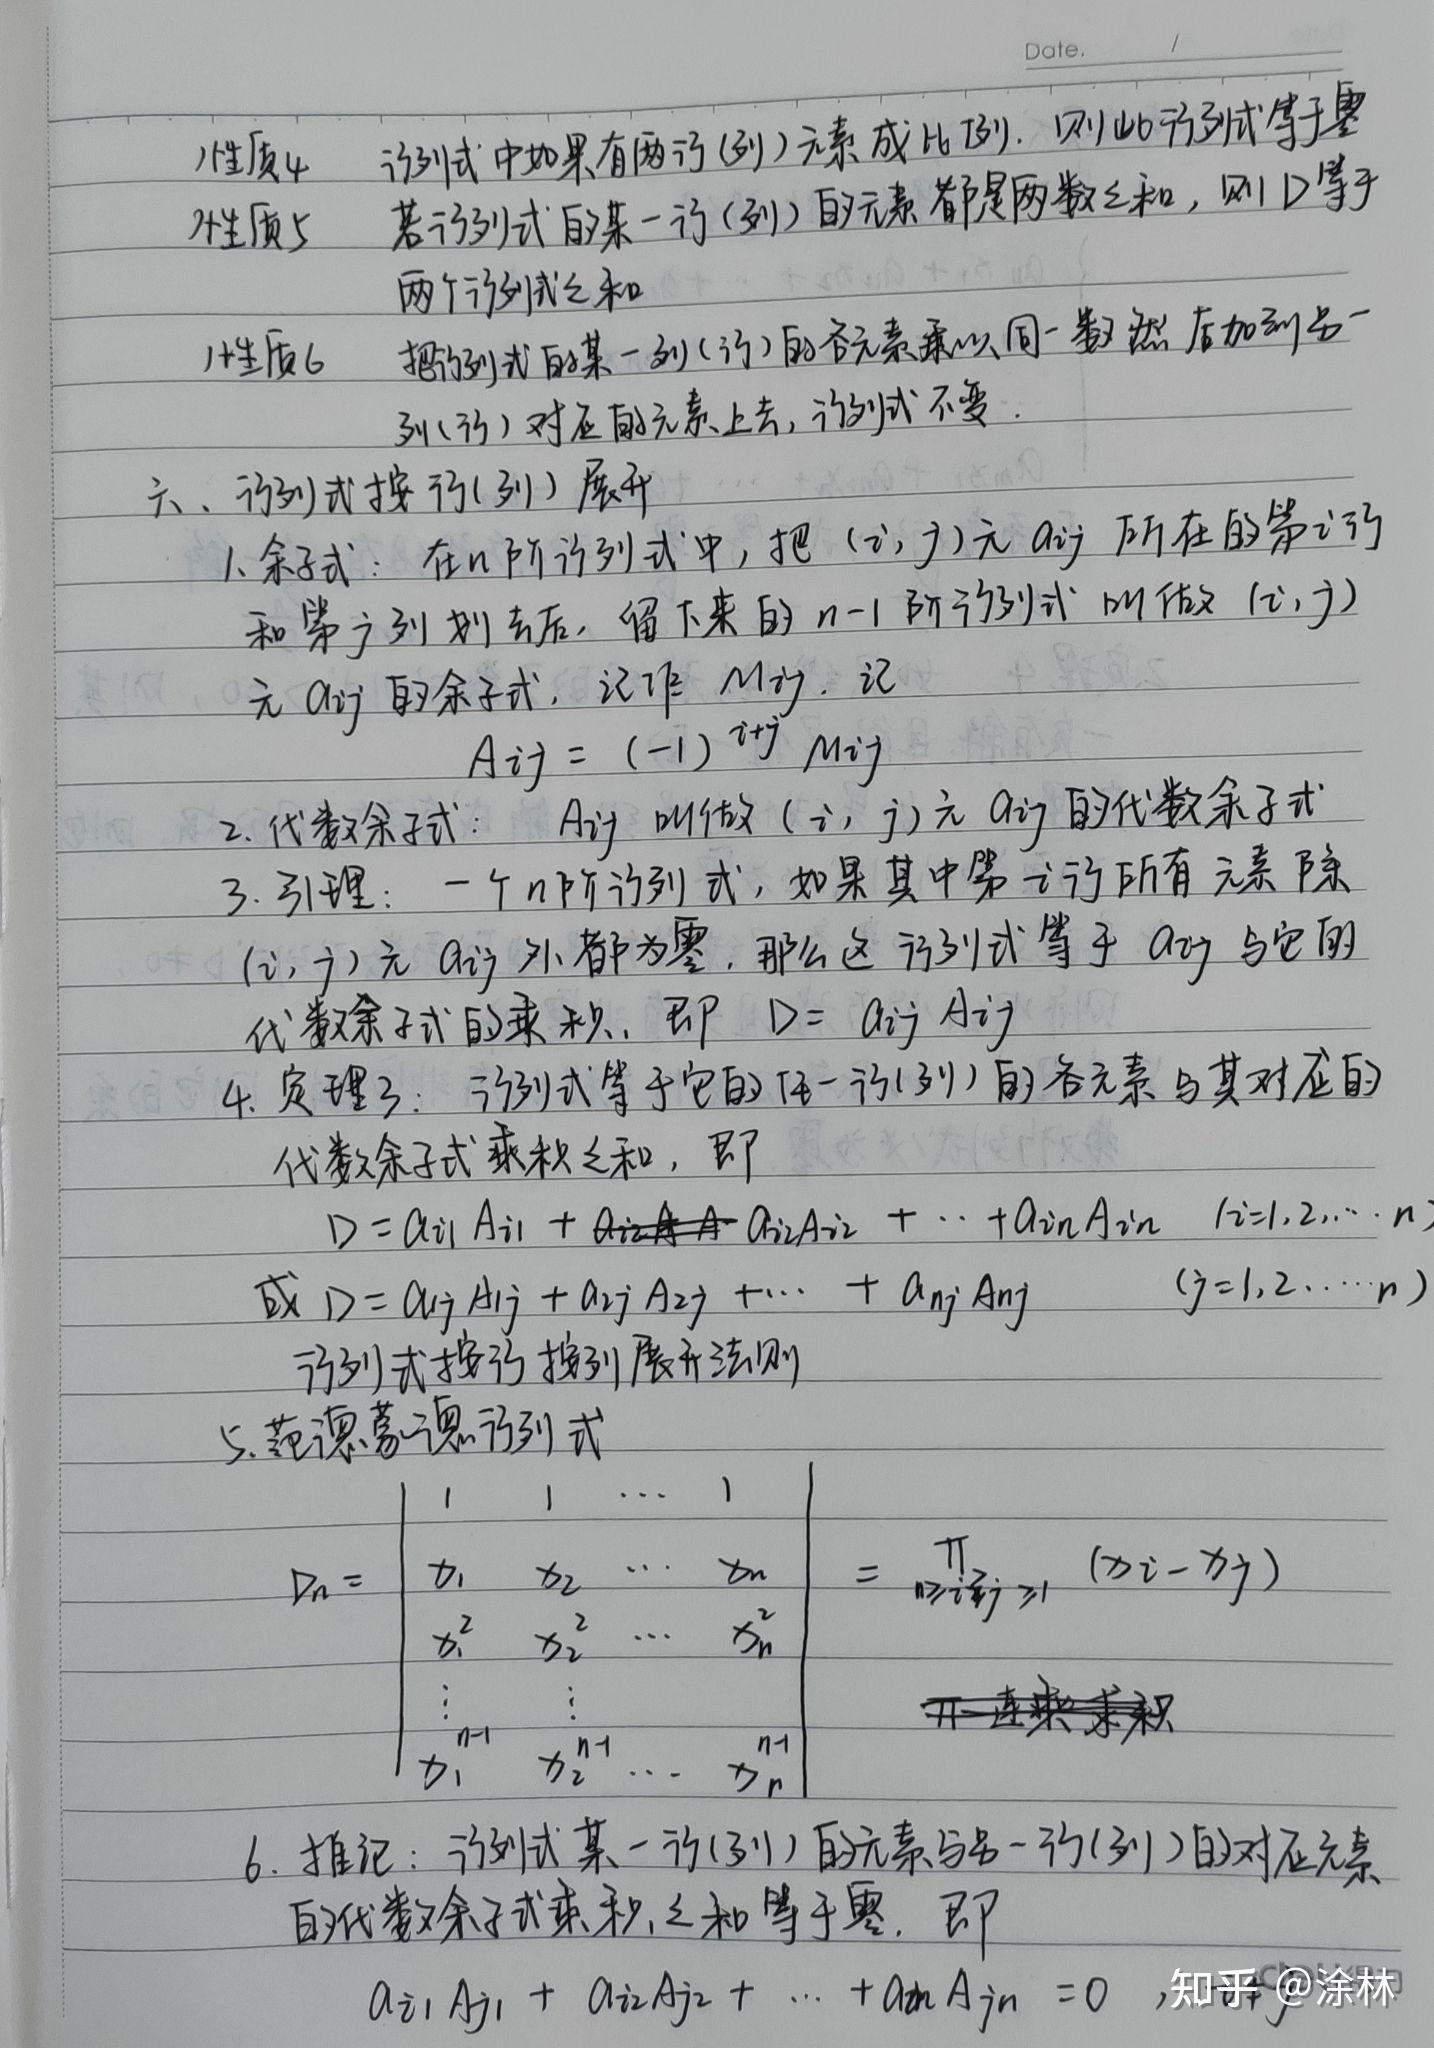 Date. /
性质4 行列式中如果有两行(列)元素成比例.则此行列式等于零
性质5 若行列式的某一行(列)的元素都是两数之和,则D等于
两个行列式之和
性质6 把行列式的某一列(行)的各元素乘以同一数然后加到另一
列(行)对应的元素上去,行列式不变.
六、行列式按行(列)展开
1.余子式:在n阶行列式中,把(i,j)元aij所在的第i行
和第j列划去后,留下来的n-1阶行列式叫做(i,j)
元aij的余子式,记作Mij.记
Aij = (-1)^{i+j} Mij
2.代数余子式: Aij叫做(i,j)元aij的代数余子式
3.引理:一个n阶行列式,如果其中第i行所有元素除
(i,j)元aij外都为零.那么这行列式等于aij与它的
代数余子式的乘积,即 D= aij Aij
4.定理3:行列式等于它的任一行(列)的各元素与其对应的
代数余子式乘积之和,即
D = ai1 Ai1 + ai2Ai2 + ... + ainAin (i=1,2,... n)
或 D = a1j A1j + a2j A2j + ... + anj Anj (j=1,2......n)
行列式按行按列展开法则
5.范德蒙德行列式
1 1 ... 1
Dn = x1 x2 ... xn = π n≥i≥j≥1 (xi-xj)
x1^2 x2^2 ... xn^2
⋮ ⋮
π 连乘求积
x1^{n-1} x2^{n-1} ... xn^{n-1}
6.推论:行列式某一行(列)的元素与另一行(列)的对应元素
的代数余子式乘积之和等于零.即
ai1 Aj1 + ai2Aj2 + ... + ain Ajn = 0 , i≠j
知乎 @涂林